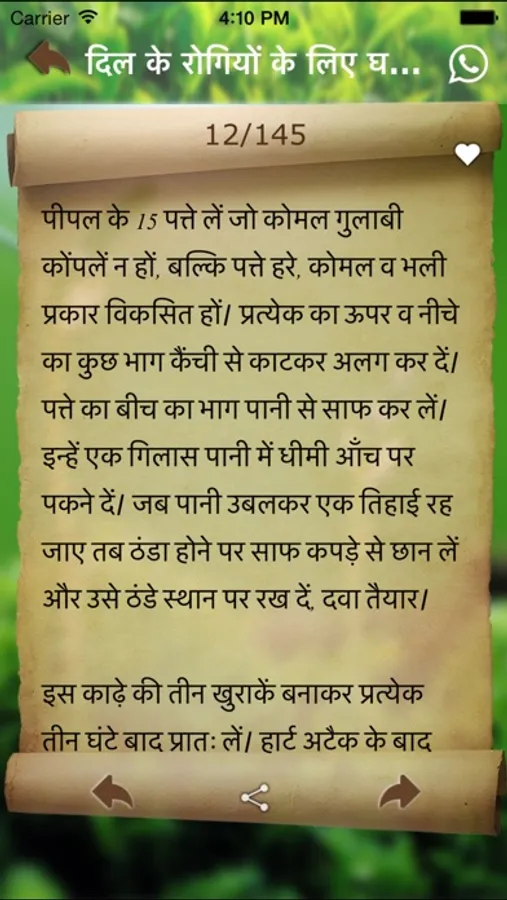 Carrier 4:10 PM
दिल के रोगियों के लिए घ...
12/145
पीपल के 15 पत्ते लें जो कोमल गुलाबी
कोंपलें न हों, बल्कि पत्ते हरे, कोमल व भली
प्रकार विकसित हों। प्रत्येक का ऊपर व नीचे
का कुछ भाग कैंची से काटकर अलग कर दें।
पत्ते का बीच का भाग पानी से साफ कर लें।
इन्हें एक गिलास पानी में धीमी आँच पर
पकने दें। जब पानी उबलकर एक तिहाई रह
जाए तब ठंडा होने पर साफ कपड़े से छान लें
और उसे ठंडे स्थान पर रख दें, दवा तैयार।
इस काढ़े की तीन खुराकें बनाकर प्रत्येक
तीन घंटे बाद प्रातः लें। हार्ट अटैक के बाद